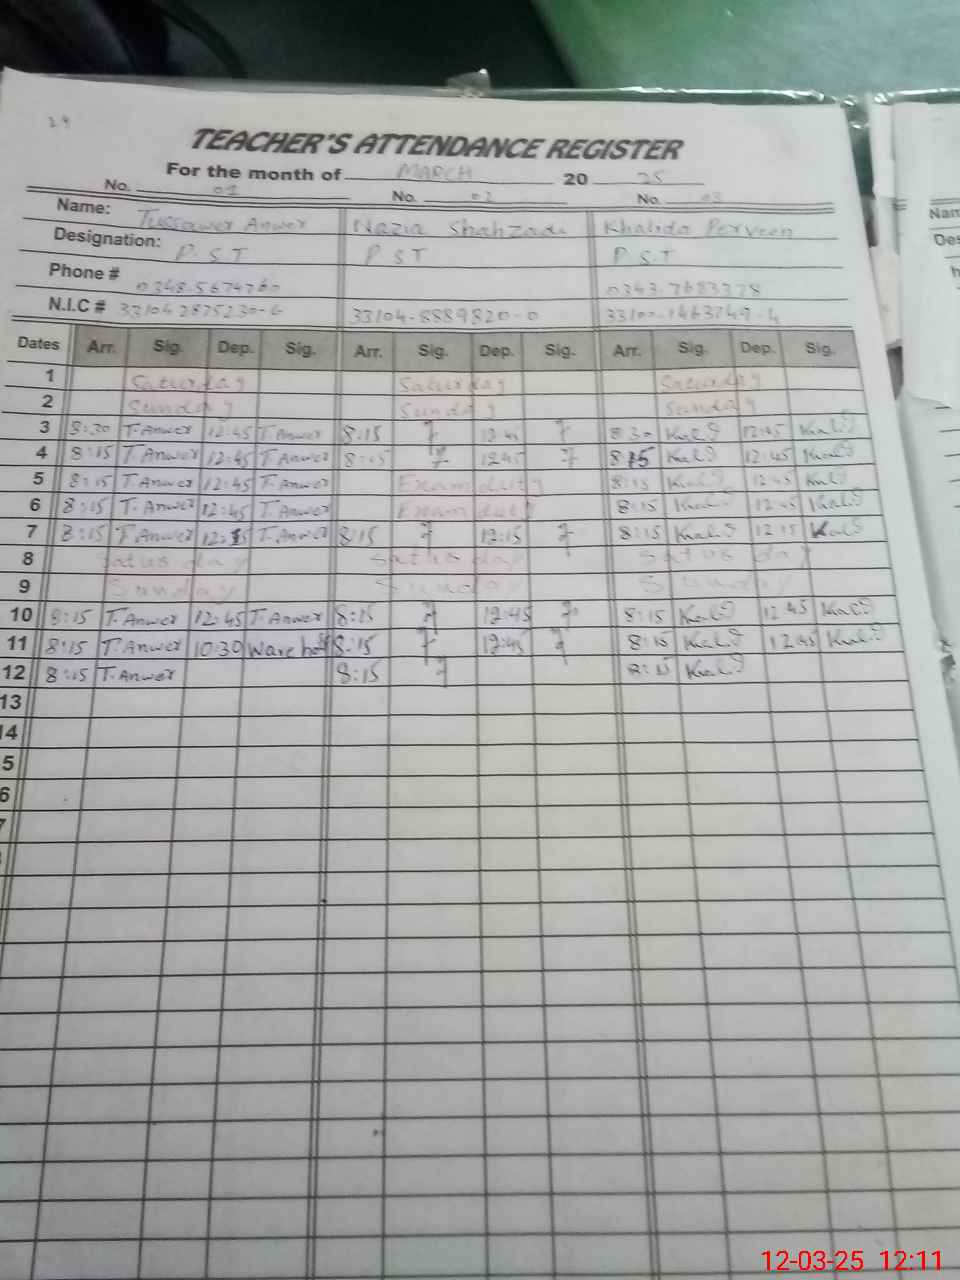 29
TEACHER'S ATTENDANCE REGISTER
For the month of MARCH 20 25
No. 01 No. 02 No. 03
Name: Tussawer Anwer Nazia Shahzadi Khalida Perveen
Designation: P.S.T P S T P S.T
Phone # 0348.5674760 0343.7683378
N.I.C # 33104-8889820-0
Dates Arr. Sig. Dep. Sig. Arr. Sig. Dep. Sig. Arr. Sig. Dep. Sig.
1 Saturday Saturday Saturday
2 Sunday Sunday Sunday
3 8:30 T.Anwer 12:45 T.Anwer 8:15 12:45 8:30 12:45
4 8:15 T.Anwer 12:45 T.Anwer 8:15 12:45 8:15 12:45
5 8:15 T.Anwer 12:45 T.Anwer Exam duty 8:15 12:45
6 8:15 T.Anwer 12:45 T.Anwer Exam duty 8:15 12:45
7 8:15 T.Anwer T.Anwer 8:15 12:15 8:15 12:15
8 Satusday Satusday Satusday
9 Sunday Sunday Sunday
10 8:15 T.Anwer 12:45 T.Anwer 8:15 12:45 8:15 12 45
11 8:15 T.Anwer 10:30 8:15 12:45 8:15 12:45
12 8:15 T.Anwer 8:15 8:15
13
14
5
6
7
Nam
Des
h
12-03-25 12:11